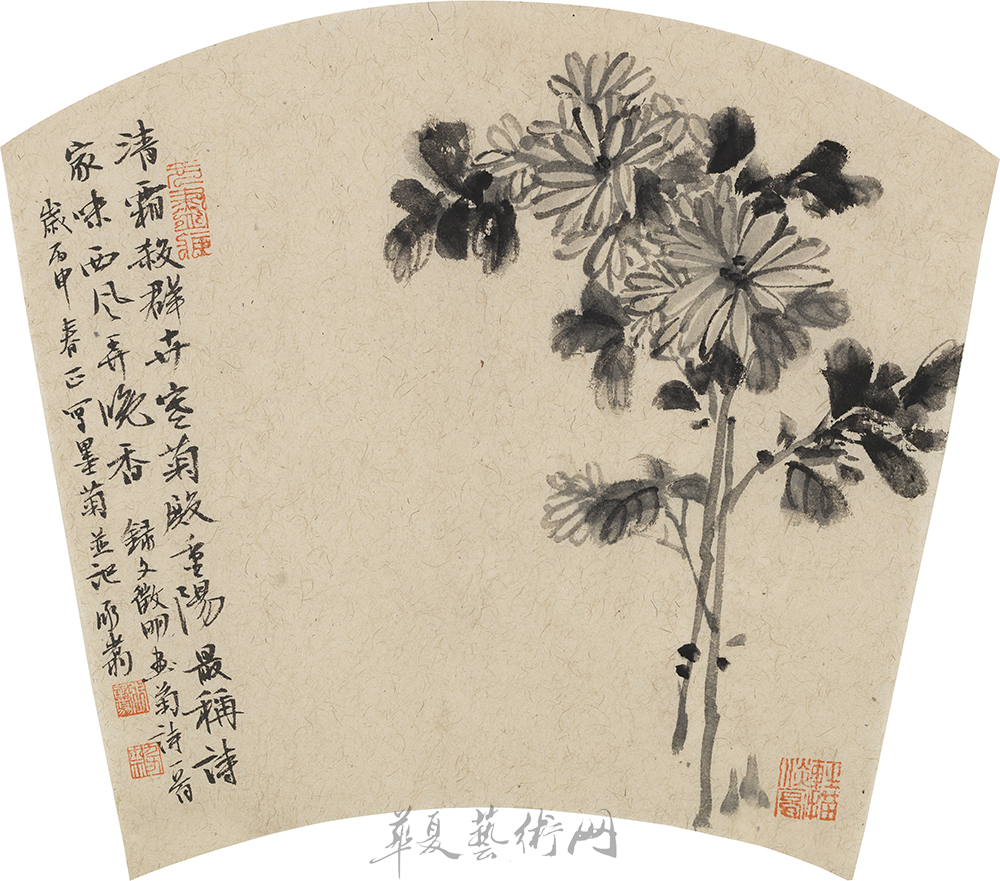 清霜殺群卉寒菊殿重陽最稱詩
家味西风弄晚香
錄文徵明画菊詩一首
歲丙申春正写墨菊並记
華夏藝術网